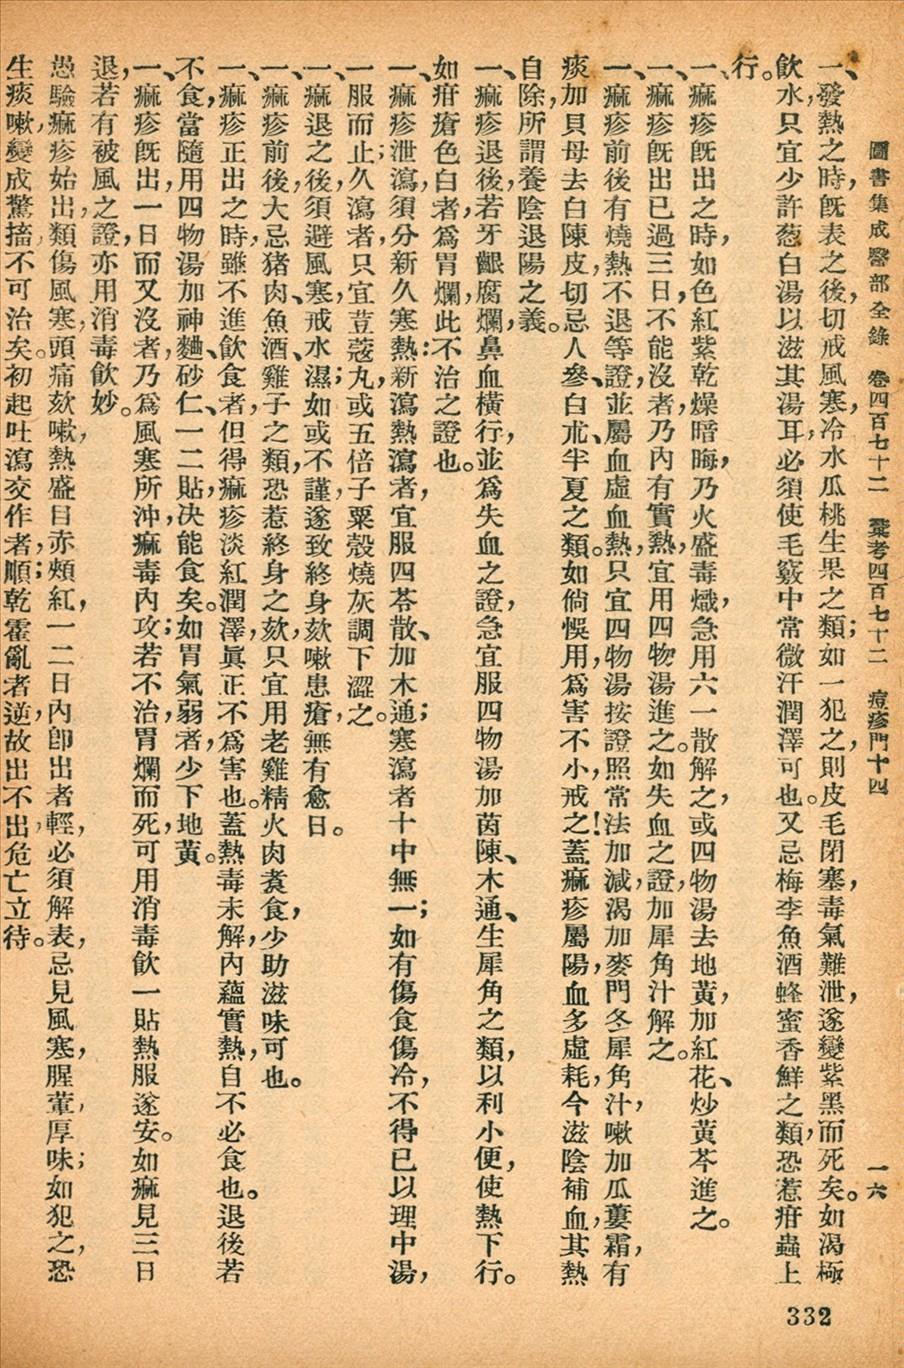 圖書集成醫部全錄　卷四百七十二　彙考四百七十二　痘疹門十四　一六
一、發熱之時,既表之後,切戒風寒,冷水瓜桃生果之類;如一犯之,則皮毛閉塞,毒氣難泄,遂變紫黑而死矣。如渴極
飲水,只宜少許葱白湯以滋其湯耳,必須使毛竅中常微汗潤澤可也。又忌梅李魚酒蜂蜜香鮮之類,恐惹疳蟲上
行。
一、痲疹既出之時,如色紅紫乾燥暗晦,乃火盛毒熾,急用六一散解之,或四物湯去地黃,加紅花、炒黃芩進之。
一、痲疹既出已過三日,不能沒者,乃內有實熱,宜用四物湯進之。如失血之證,加犀角汁解之。
一、痲疹前後有燒熱不退等證,並屬血虛血熱,只宜四物湯按證照常法加減,渴加麥門冬犀角汁,嗽加瓜蔞霜,有
痰加貝母去白陳皮,切忌人參、白朮、半夏之類。如倘悞用,爲害不小,戒之!蓋痲疹屬陽,血多虛耗,今滋陰補血,其熱
自除,所謂養陰退陽之義。
一、痲疹退後,若牙齦腐爛,鼻血橫行,並爲失血之證,急宜服四物湯加茵陳、木通、生犀角之類,以利小便,使熱下行。
如疳瘡色白者,爲胃爛,此不治之證也。
一、痲疹泄瀉,須分新久寒熱:新瀉熱瀉者,宜服四苓散、加木通;寒瀉者十中無一;如有傷食傷冷,不得已以理中湯,
一服而止;久瀉者,只宜荳蔻丸,或五倍子粟殼燒灰調下澀之。
一、痲退之後,須避風寒,戒水濕;如或不謹,遂致終身欬嗽患瘡,無有愈日。
一、痲疹前後,大忌猪肉、魚酒、雞子之類,恐惹終身之欬,只宜用老雞精火肉煑食,少助滋味可也。
一、痲疹正出之時,雖不進飲食者,但得痲疹淡紅潤澤,眞正不爲害也。蓋熱毒未解,內蘊實熱,自不必食也。退後若
不食,當隨用四物湯加神麯、砂仁、一二貼,决能食矣。如胃氣弱者,少下地黃。
一、痲疹既出,一日而又沒者,乃爲風寒所沖,痲毒內攻;若不治,胃爛而死,可用消毒飲一貼熱服遂安。如痲見三日
退,若有被風之證,亦用消毒飲妙。
愚驗痲疹始出,類傷風寒,頭痛欬嗽,熱盛目赤頰紅,一二日內卽出者輕,必須解表,忌見風寒,腥葷,厚味;如犯之,恐
生痰嗽,變成驚搐,不可治矣。初起吐瀉交作者,順;乾霍亂者逆,故出不出,危亡立待。
332